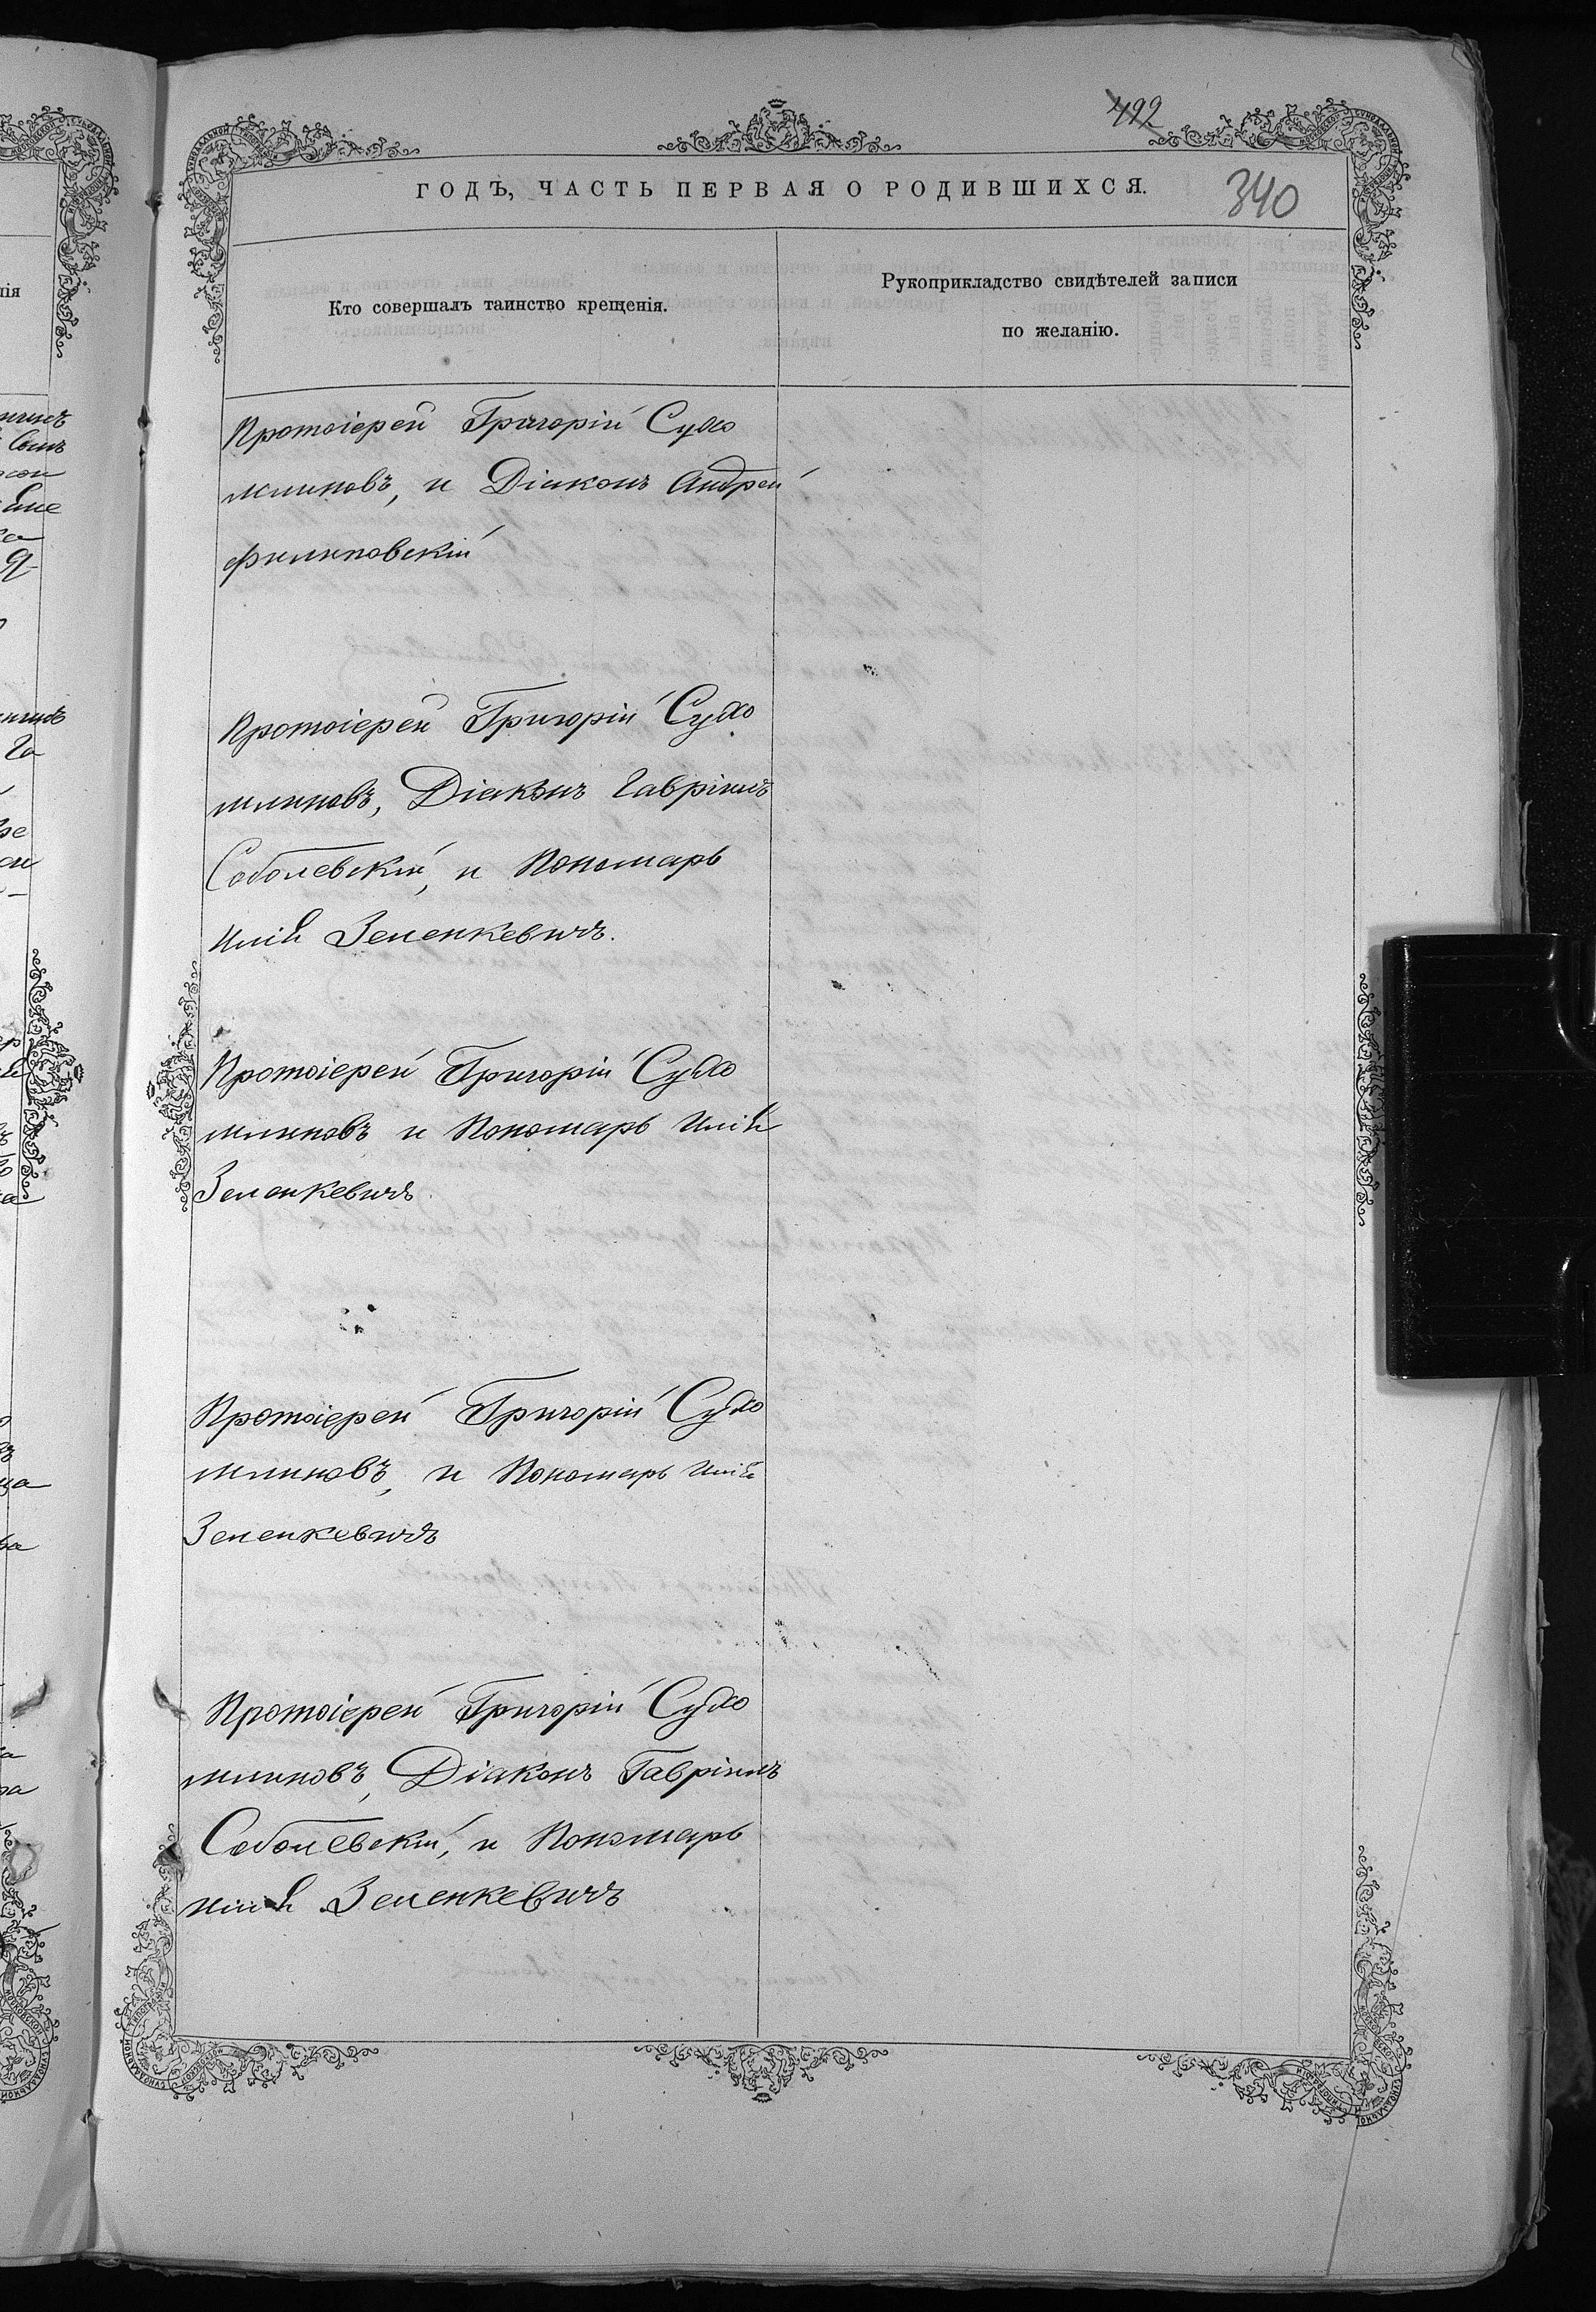 492
ГОДЪ, ЧАСТЬ ПЕРВАЯ О РОДИВШИХСЯ.
340
Кто совершалъ таинство крещенія.
Рукоприкладство свидѣтелей записи
по желанію.
Протоіерей Григорій Сухо
млиновъ, и Діаконъ Андрей
Филиповскій
Протоіерей Григорій Сухо
млиновъ, Діаконъ Гавріилъ
Соболевскій, и Пономарь
Илія Зеленкевичъ.
Протоіерей Григорій Сухо
млиновъ и Пономарь Илія
Зеленкевичъ
Протоіерей Григорій Сухо
млиновъ, и Пономарь Илія
Зеленкевичъ
Протоіерей Григорій Сухо
млиновъ, Діаконъ Гавріилъ
Соболевскій, и Пономарь
Илія Зеленкевичъ